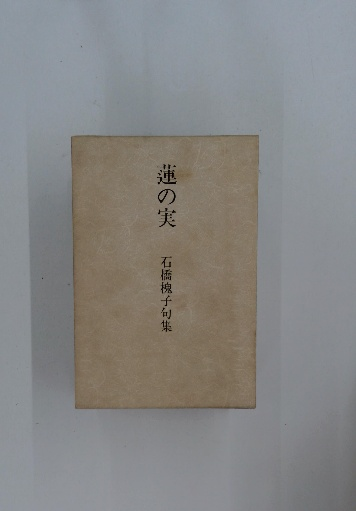 蓮の実
石橋槐子句集